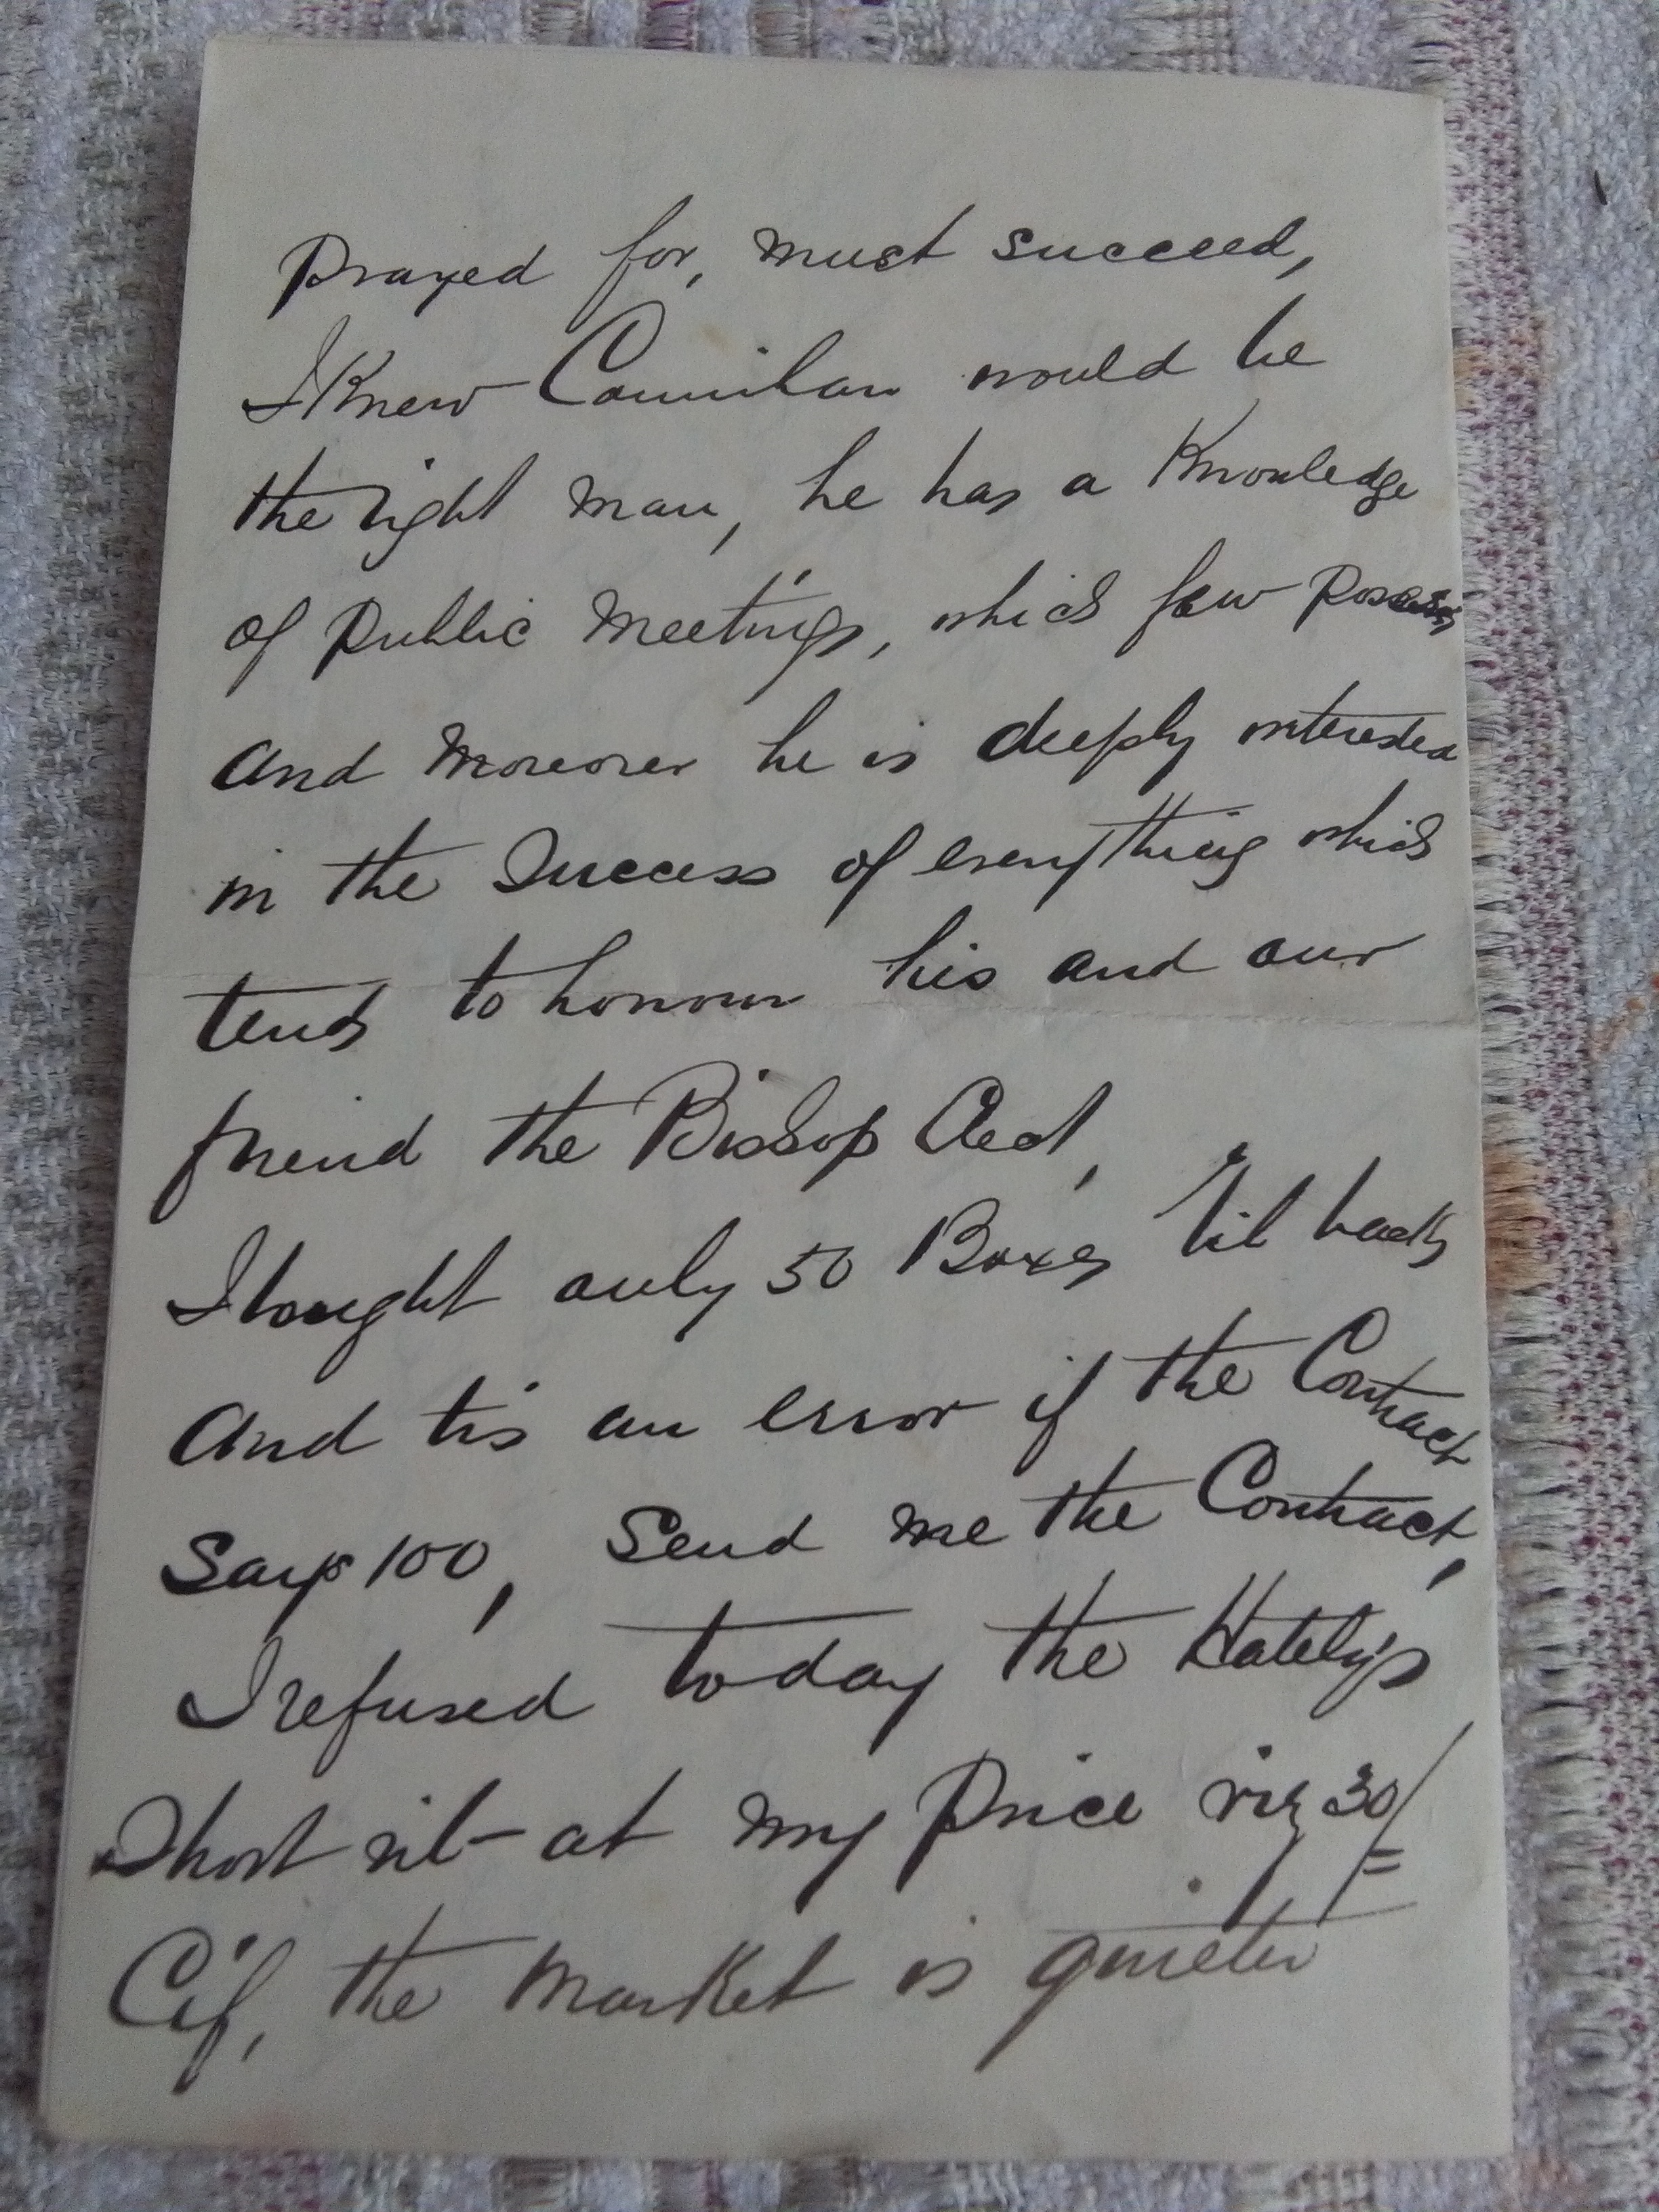 Prayed for, must succeed,
I Knew Counihan would be
the right man, he has a Knowledge
of Public Meetings, which few
and Moreover he is deeply interested
in the Success of everything which
tends to honour his and our
friend the Bishop Aed,
I bought only 50 Boxes rib backs
And tis an error if the Contract
Says 100, Send me the Contract,
I refused today the Hatelys
Short rib at my Price viz 30/=
Cif, the Market is quieter